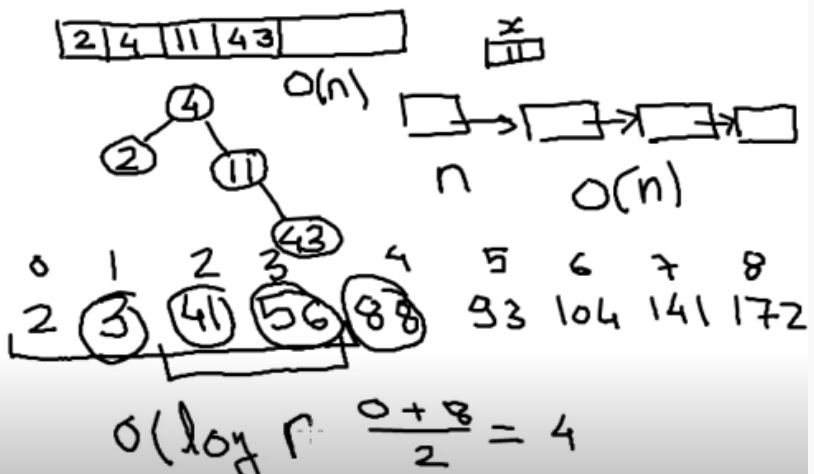 2 4 11 43
x
11
O(n)
4
2
11
43
n
O(n)
0 1 2 3 4 5 6 7 8
2 3 41 56 88 93 104 141 172
O(log
0 + 8
2
= 4